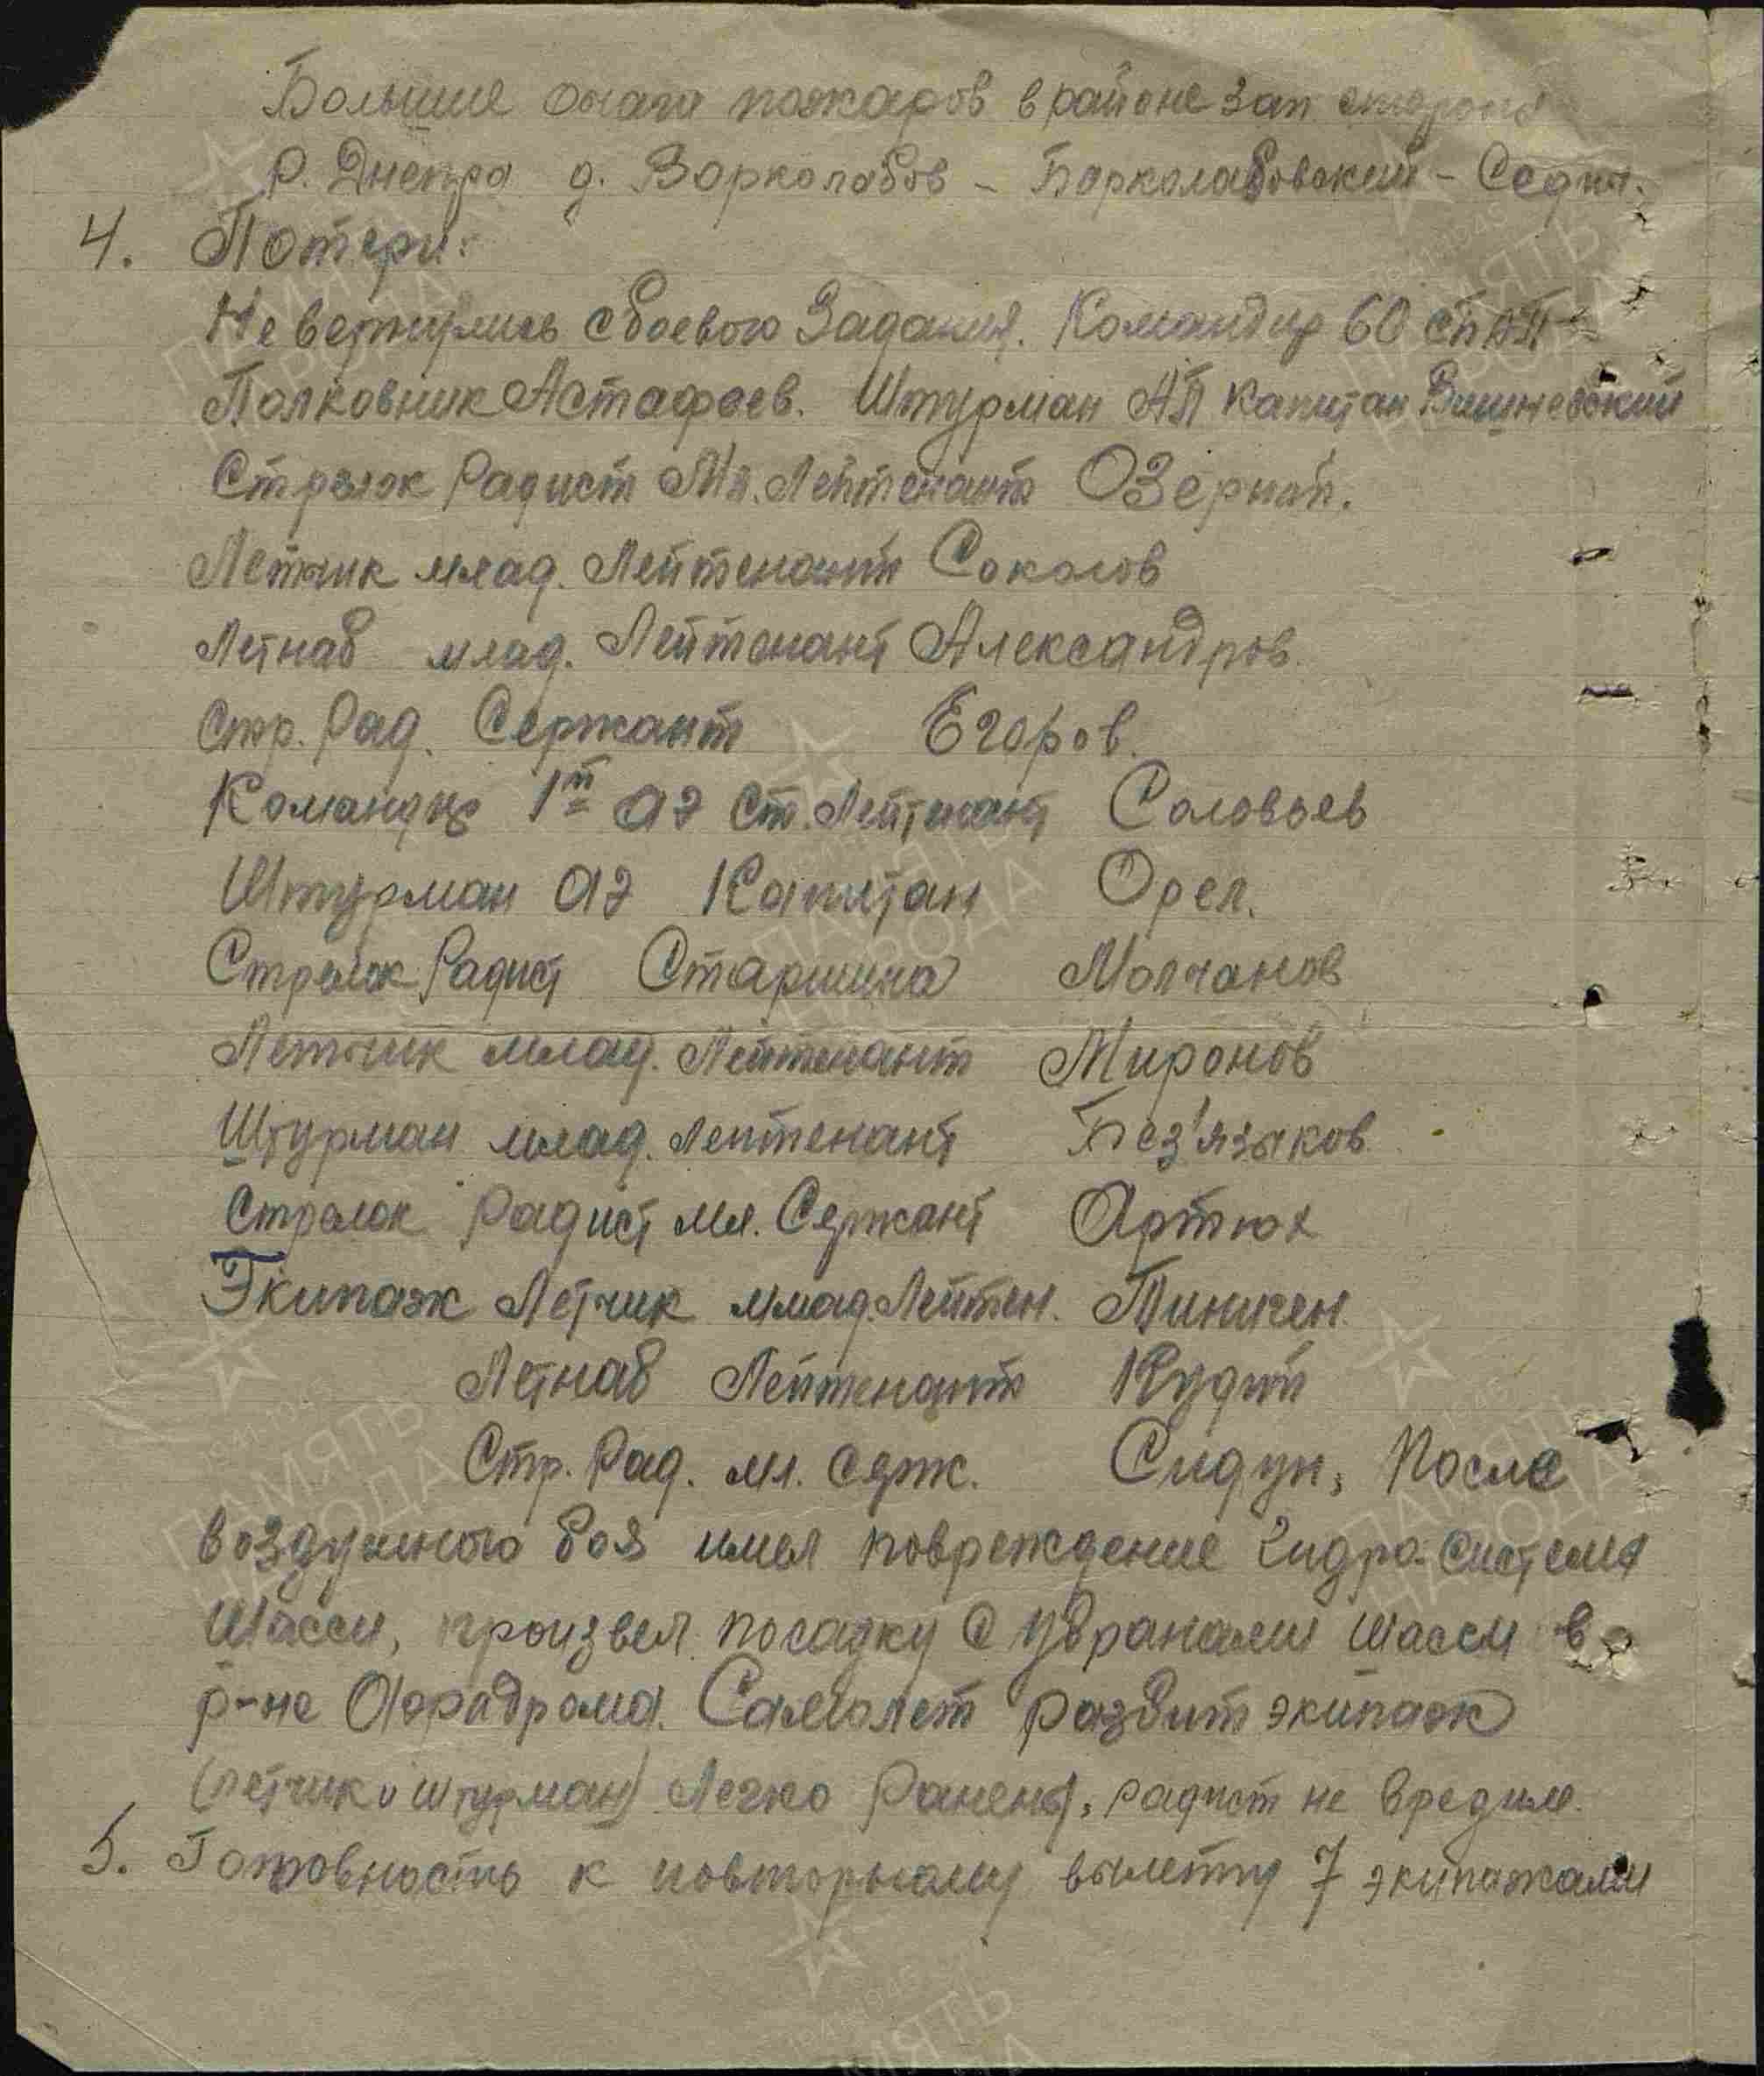 Большие очаги пожаров в районе зап стороны
Р. Днепра д. Варколабов - Барколабовский -
4. Потери:
Не вернулись с боевого Задания. Командир 60 СБАП
Полковник Астафьев. Штурман АП Капитан Вишневский
Стрелок Радист Мл. Лейтенант Озерный.
Летчик млад. Лейтенант Соколов
Летнаб млад. Лейтенант Александров.
Стр. Рад. Сержант Егоров.
Командир 1й аэ Ст. Лейтенант Соловьев
Штурман аэ Капитан Орел.
Стрелок Радист Старшина Молчанов
Летчик млад. Лейтенант Миронов
Штурман млад. Лейтенант Без'языков
Стрелок Радист мл. Сержант Артюх
Экипаж Летчик млад. Лейтен. Тиничен.
Летнаб Лейтенант Кудин
Стр. Рад. мл. серж. Сидун, после
воздушного боя имея повреждение Гидро-системы
Шасси, произвел посадку с убранами шасси в
р-не Аэродрома. Самолет разбит экипаж
(летчик и штурман) Легко Ранены, радист не вредим.
5. Готовность к повторному вылету 7 экипажами
ПАМЯТЬ
НАРОДА